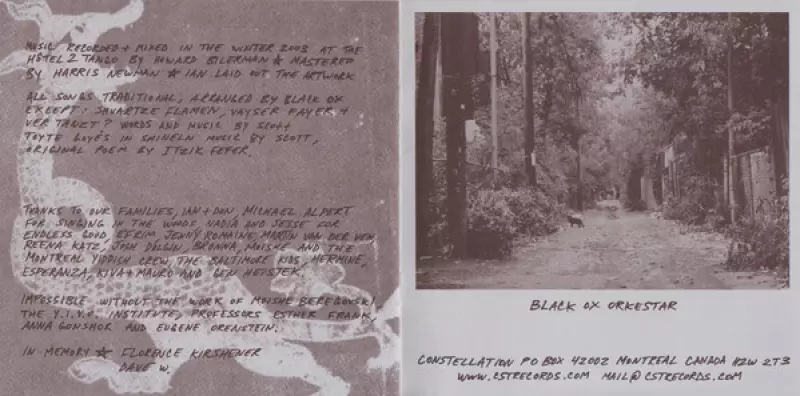 MUSIC RECORDED + MIXED IN THE WINTER 2003 AT THE
HOTEL 2 TANGO BY HOWARD BILERMAN ★ MASTERED
BY HARRIS NEWMAN ★ IAN LAID OUT THE ARTWORK
ALL SONGS TRADITIONAL, ARRANGED BY BLACK OX
EXCEPT: SHVARTZE FLAMEN, VAYSER FAYER, +
VER TANZT? WORDS AND MUSIC BY SCOTT
TOYTE GOYES IN SHINELN MUSIC BY SCOTT,
ORIGINAL POEM BY ITZIK FEFER.
THANKS TO OUR FAMILIES, IAN + DON, MICHAEL ALPERT
FOR SINGING IN THE WOODS, NADIA AND JESSE FOR
ENDLESS GOOD, EFRIM, JENNY ROMAINE, MARTIN VAN DER VEN
REENA KATZ, JOSH DOLGIN, BRONNA, MOISHE AND THE
MONTREAL YIDDISH CREW, THE BALTIMORE KIDS, HERMINE,
ESPERANZA, KIVA + MAURO AND GEN HEISTEK.
IMPOSSIBLE WITHOUT THE WORK OF MOISHE BEREGOVSKI,
THE Y.I.V.O. INSTITUTE, PROFESSORS ESTHER FRANK,
ANNA GONSHOR AND EUGENE ORENSTEIN.
IN MEMORY ★ FLORENCE KIRSHENER
DAVE W.
BLACK OX ORKESTAR
CONSTELLATION PO BOX 42002 MONTREAL CANADA H2W 2T3
WWW.CSTRECORDS.COM MAIL@CSTRECORDS.COM